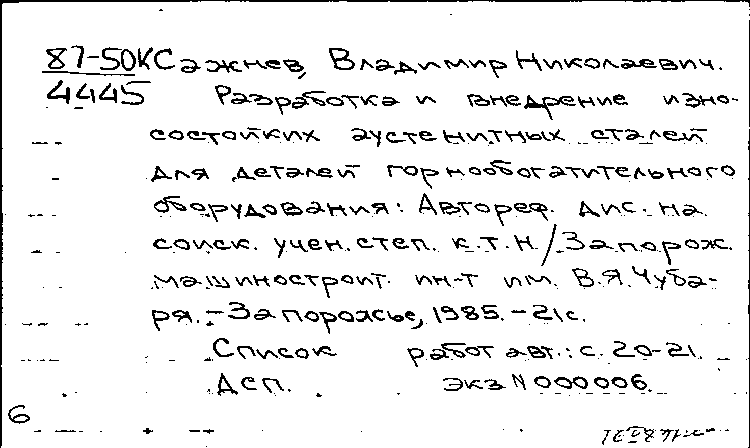 87-50К Сажнев, Владимир Николаевич.
4445 Разработка и внедрение изно-
состойких аустенитных сталей
для деталей горнообогатительного
оборудования: Автореф. дис. на
соиск. учен. степ. к.т.н./Запорож.
машиностроит. ин-т им. В.Я. Чуба-
ря. - Запорожье, 1985. - 21с.
Список работ авт.: с. 20-21.
ДСП. экз N 000006.
6